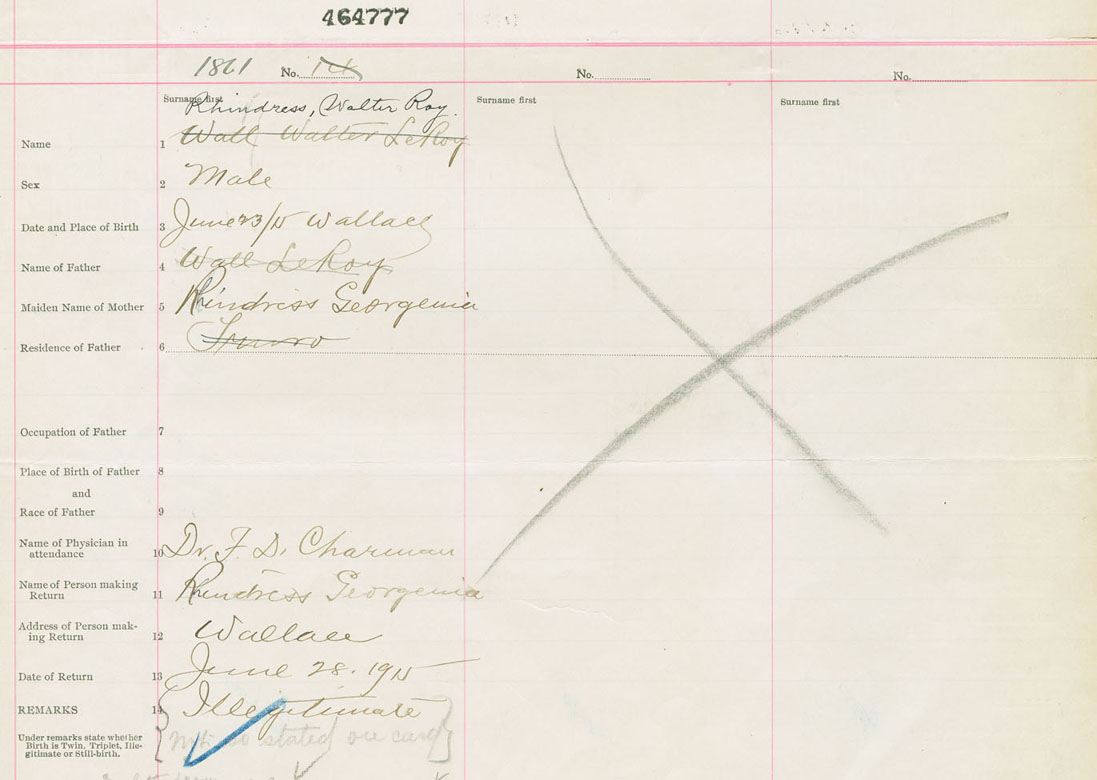 464777
1861 No. No. No.
Surname first Surname first Surname first
Rhindress, Walter Roy.
Name 1 Wall Walter LeRoy
Sex 2 Male
Date and Place of Birth 3 June 23/15 Wallace
Name of Father 4 Wall LeRoy
Maiden Name of Mother 5 Rhindress Georgenia
Residence of Father 6 Truro
Occupation of Father 7
Place of Birth of Father 8
and
Race of Father 9
Name of Physician in
attendance 10 Dr. F. D. Charman
Name of Person making
Return 11 Rhindress Georgenia
Address of Person mak-
ing Return 12 Wallace
Date of Return 13 June 28. 1915
REMARKS 14 Illegitimate
Under remarks state whether
Birth is Twin, Triplet, Ille-
gitimate or Still-birth.
Not so stated on card